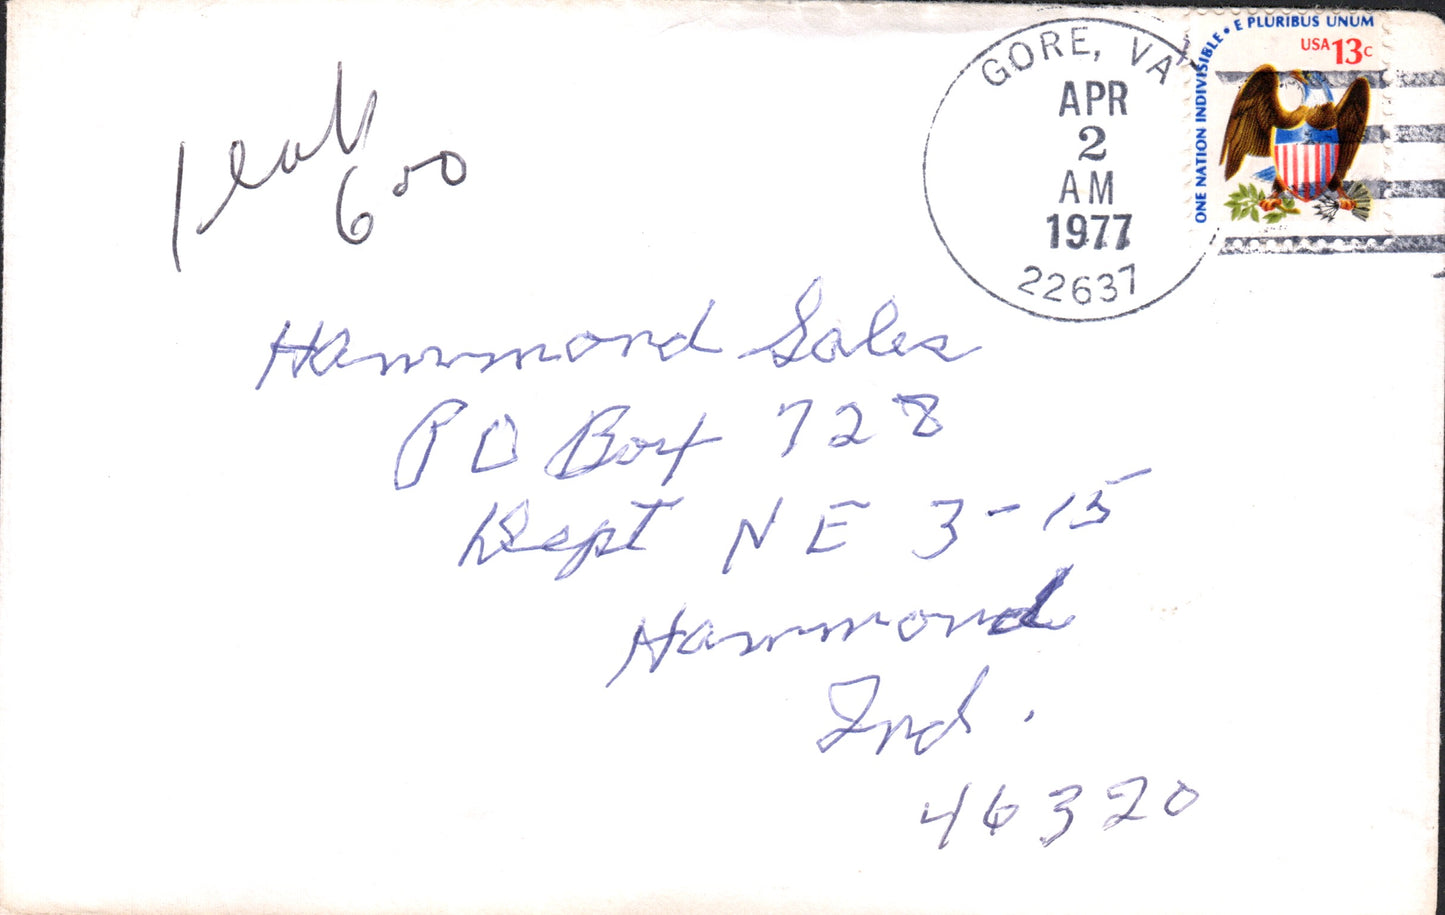 GORE, VA
APR
2
AM
1977
22637
ONE NATION INDIVISIBLE • E PLURIBUS UNUM
USA 13c
1
600
Hammond Sales
PO Box 728
Dept NE 3-15
Hammond
Ind.
46320